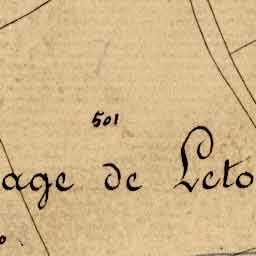 501
age de Leto